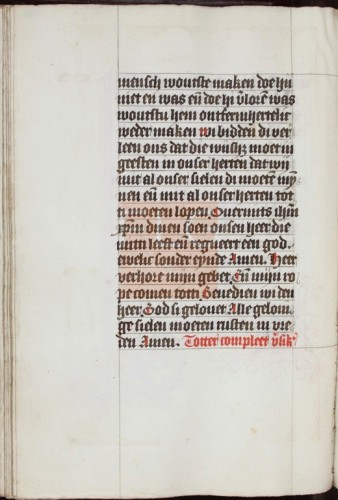 mensch woutste maken doe hi
niet en was eñ doe hi v̾lorē was
woutstu hem ontfermhertelic
weder maken wi bidden di ver
leen ons dat die wijsh̾ moet in
geesten in onser herten dat wij
mit al onser sielen di moetē mȳ
nen eñ mit al onser herten tot
ti moeten lopen Ouermits ihm̄
xp̄m dinen soen onsen heer die
mitti leeft eñ regneert een god.
ewelic sonder eynde Amen. Heer
verhore mijn gebet Eñ mijn ro
pe comen toti Benedien wi den
heer God si gelouet Alle gelovi
ge sielen moeten rusten in vre
den Amen. Totter compleet v̾sik̾